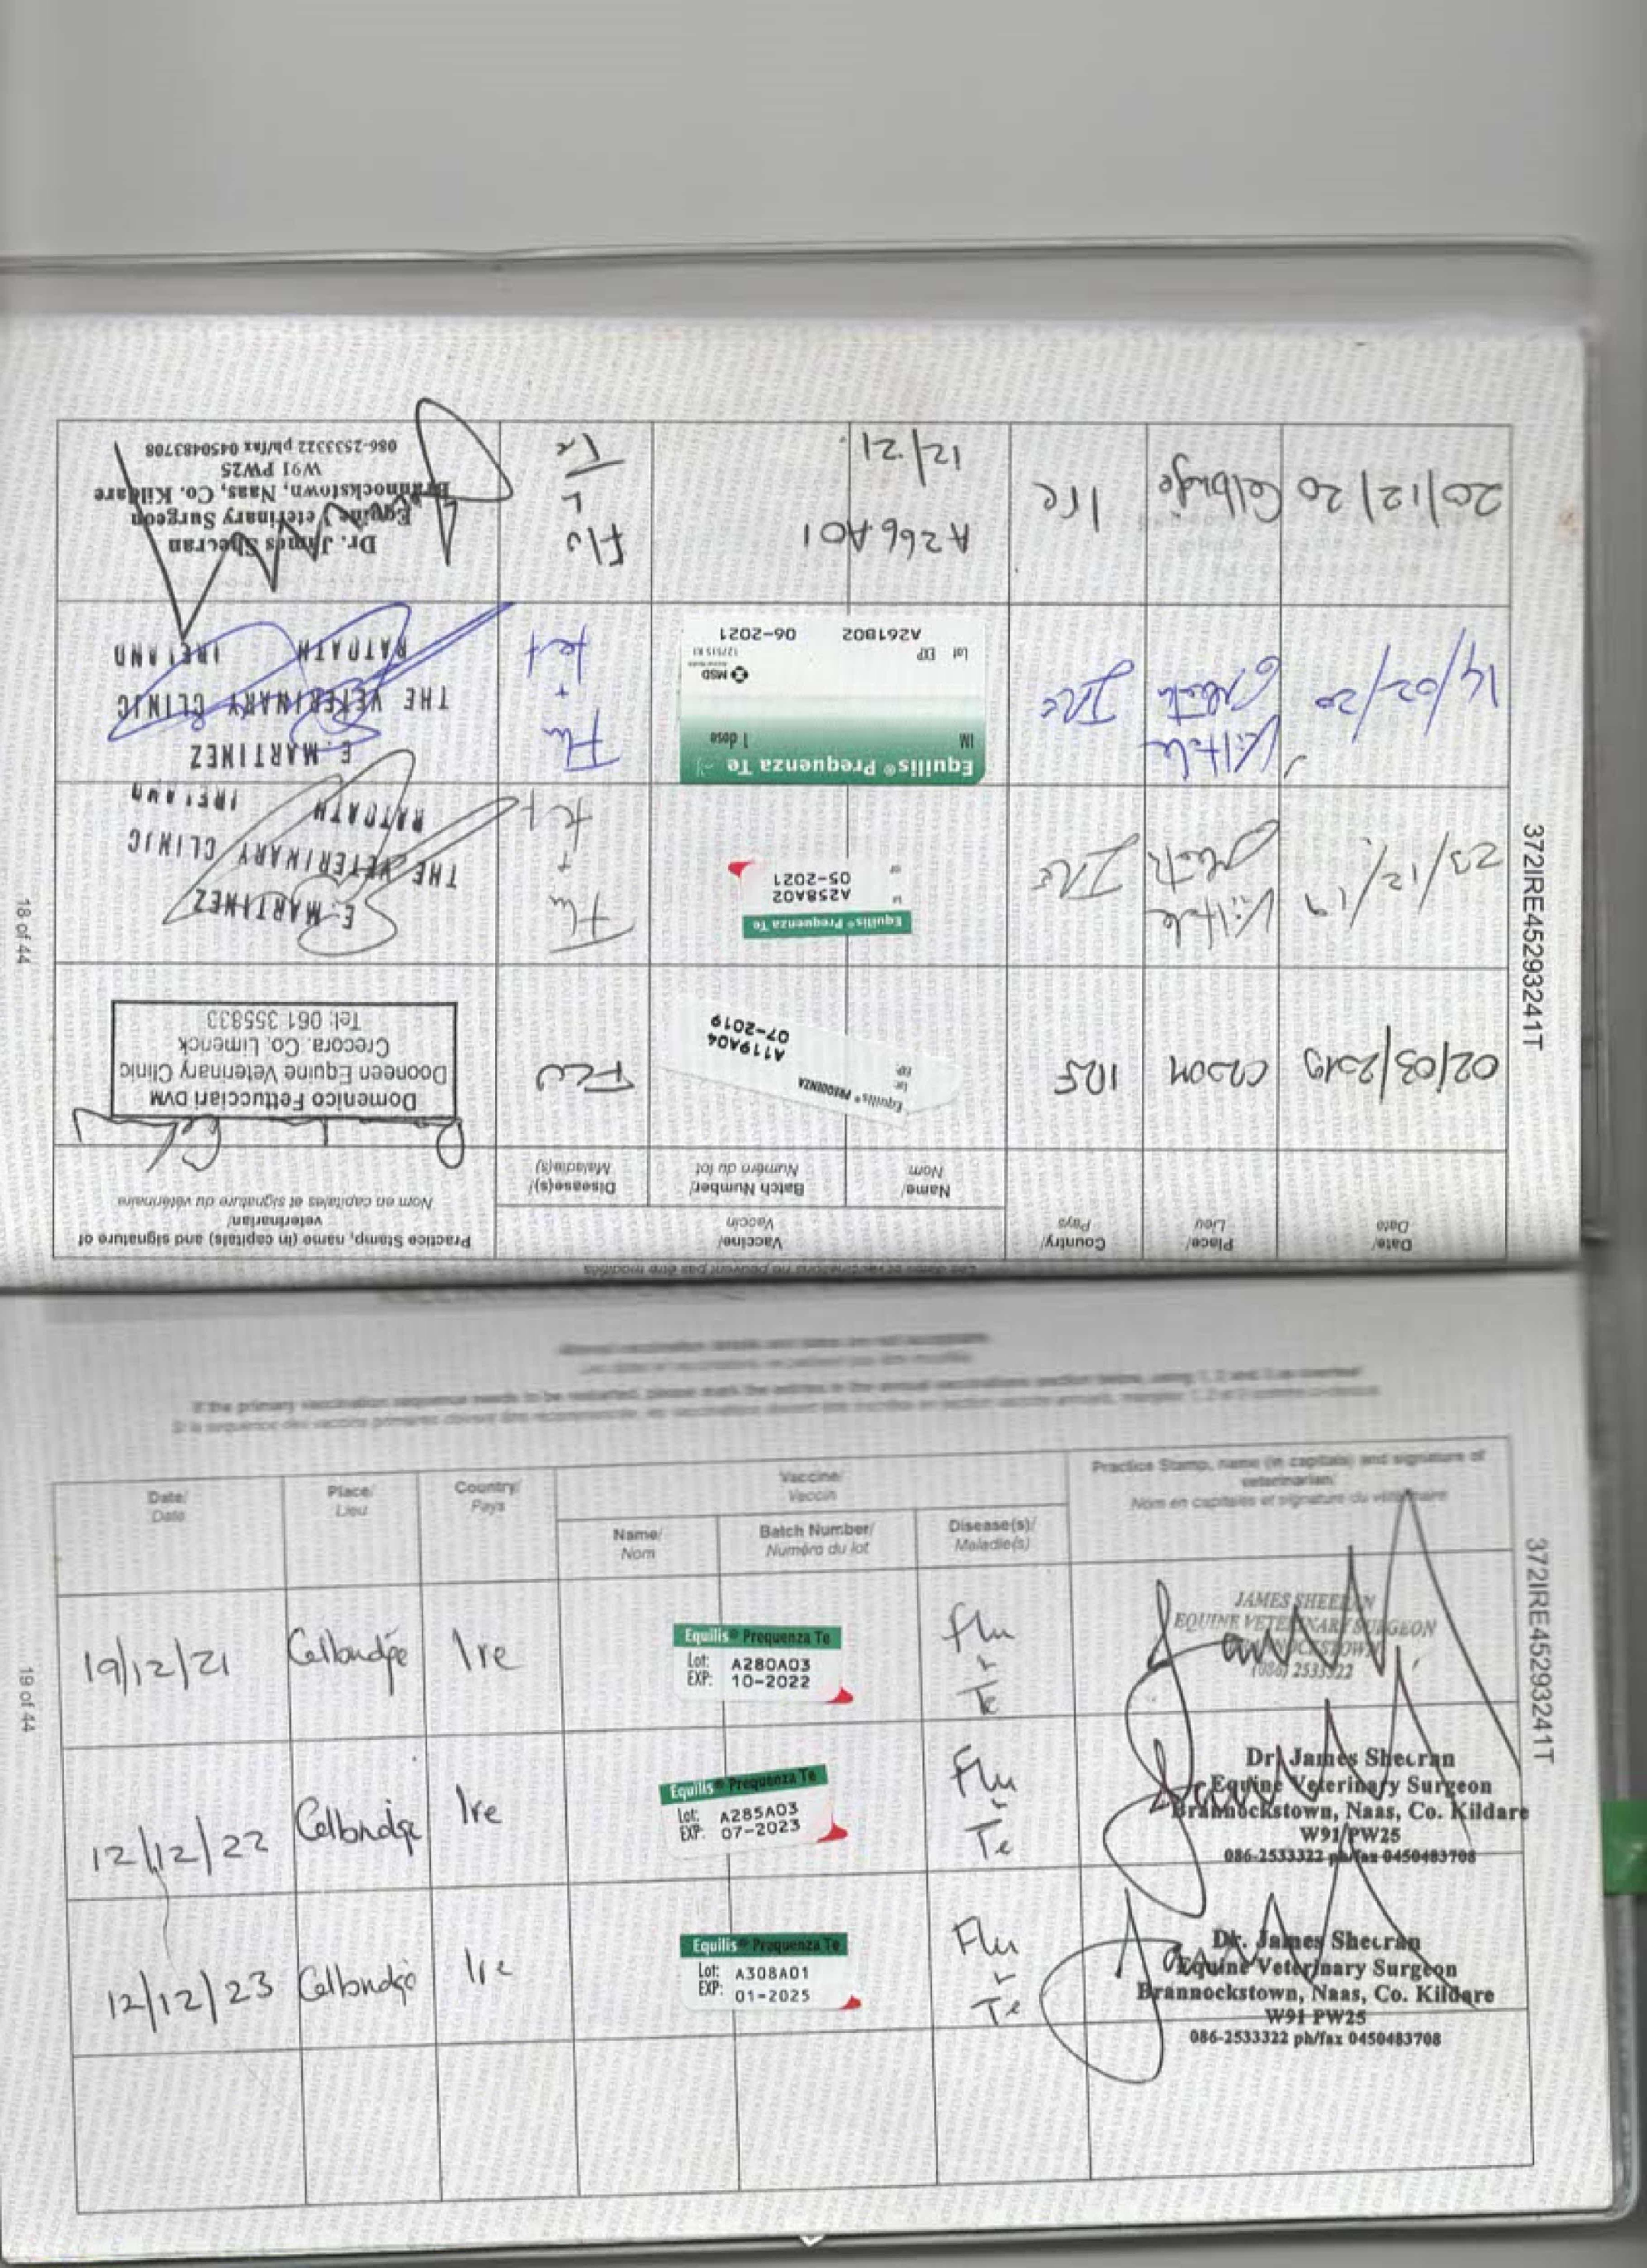 Les dates et vaccinations ne peuvent pas être modifiés
Date/
Date
Place/
Lieu
Country/
Pays
Vaccine/
Vaccin
Name/
Nom
Batch Number/
Numéro du lot
Disease(s)/
Maladie(s)
Practice Stamp, name (in capitals) and signature of
veterinarian/
Nom en capitales et signature du vétérinaire
02/03/2019
CROOM
Equilis® PREQUENZA
Lot:
EXP:
A119A04
07-2019
FLU
Domenico Fettucciari DVM
Dooneen Equine Veterinary Clinic
Crecora. Co. Limerick
Tel: 061 355833
23/12/19
Kiltale
Meath
IRE
Equilis® Prequenza Te
A258A02
05-2021
Flu
+
tet
E. MARTINEZ
THE VETERINARY CLINIC
RATOATH IRELAND
14/02/20
Kiltale
Meath
IRE
Equilis® Prequenza Te
IM 1 dose
MSD
Lot EXP
A261B02 06-2021
Flu
+
tet
E. MARTINEZ
THE VETERINARY CLINIC
RATOATH IRELAND
20/12/20
Celbridge
Ire
A266A01
12/21
Flu
Te
Dr. James Sheeran
Equine Veterinary Surgeon
Brannockstown, Naas, Co. Kildare
W91 PW25
086-2533322 ph/fax 0450483708
372IRE45293241T
18 of 44
Les dates et vaccinations ne peuvent pas être modifiés
If the primary vaccination sequence needs to be restarted, please mark the entries in the annual vaccinations section below, using 1, 2 and 3 as inserted
Date/
Date
Place/
Lieu
Country/
Pays
Vaccine/
Vaccin
Name/
Nom
Batch Number/
Numéro du lot
Disease(s)/
Maladie(s)
Practice Stamp, name (in capitals) and signature of
veterinarian/
Nom en capitales et signature du vétérinaire
19/12/21
Celbridge
Ire
Equilis® Prequenza Te
Lot: A280A03
EXP: 10-2022
Flu
Te
JAMES SHEERAN
EQUINE VETERINARY SURGEON
BRANNOCKSTOWN
(086) 2533322
12/12/22
Celbridge
Ire
Equilis® Prequenza Te
Lot: A285A03
EXP: 07-2023
Flu
Te
Dr. James Sheeran
Equine Veterinary Surgeon
Brannockstown, Naas, Co. Kildare
W91 PW25
086-2533322 ph/fax 0450483708
12/12/23
Celbridge
Ire
Equilis® Prequenza Te
Lot: A308A01
EXP: 01-2025
Flu
Te
Dr. James Sheeran
Equine Veterinary Surgeon
Brannockstown, Naas, Co. Kildare
W91 PW25
086-2533322 ph/fax 0450483708
372IRE45293241T
19 of 44